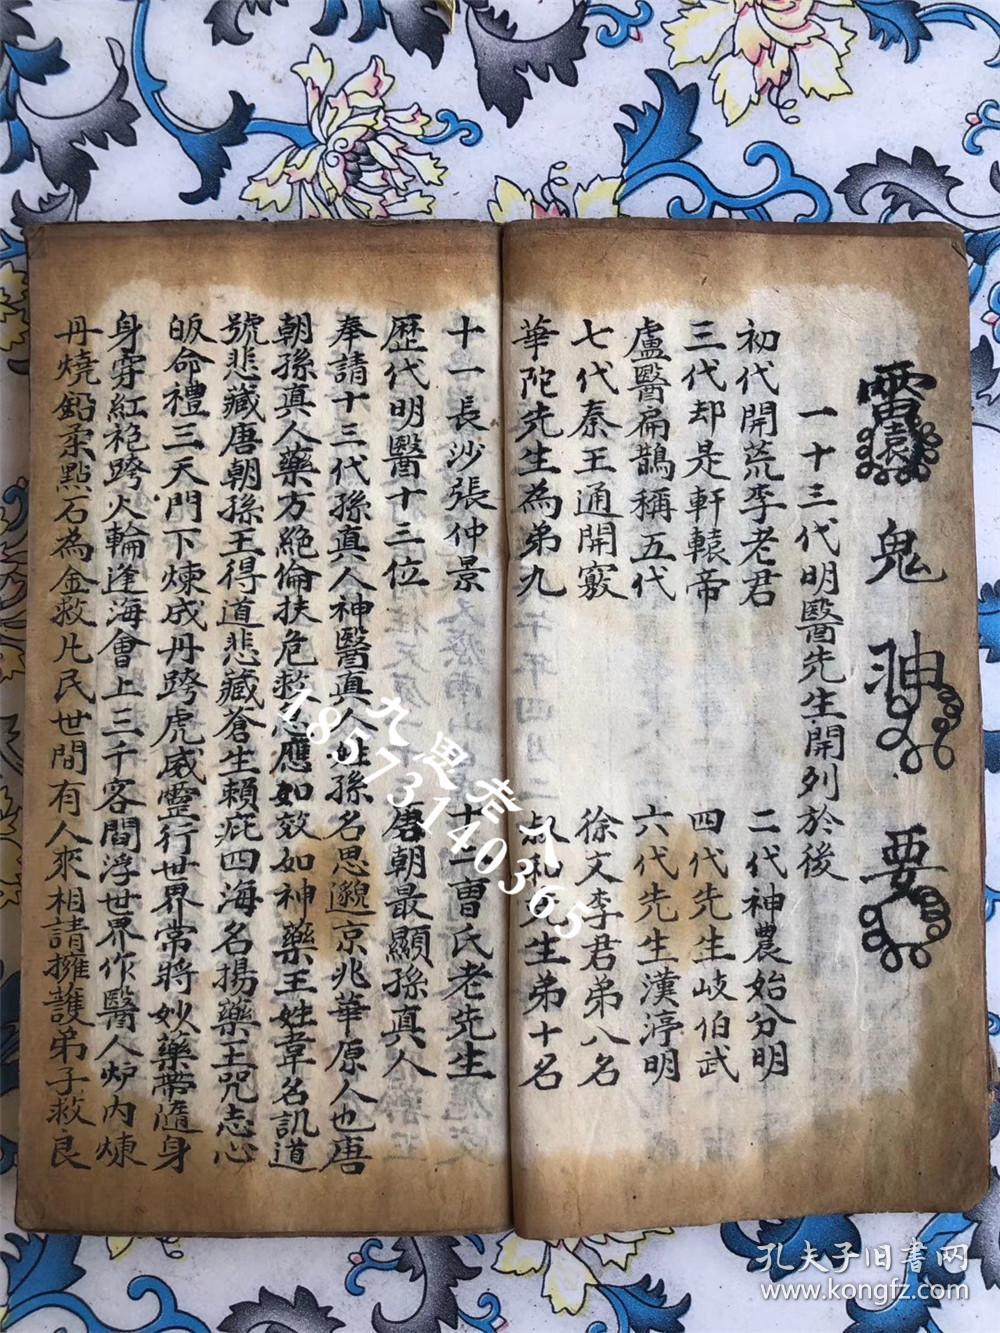 鬼神要
一十三代明醫先生開列於後
初代開荒李老君 二代神農始分明
三代却是軒轅帝 四代先生岐伯武
盧醫扁鵲稱五代 六代先生漢淳明
七代秦王通開竅 徐文李君弟八名
華陀先生為弟九 叔和先生弟十名
十一長沙張仲景 十二曹氏老先生
歷代明醫十三位 唐朝最顯孫真人
奉請十三代孫真人神醫真人姓孫名思邈京兆華原人也唐
朝孫真人藥方絕倫扶危救急應如效如神藥王姓韋名訊道
號悲藏唐朝孫王得道悲藏蒼生賴庇四海名揚藥王咒志心
皈命禮三天門下煉成丹跨虎威靈行世界常將妙藥帶隨身
身穿紅袍跨火輪逢海會上三千客間浮世界作醫人炉內煉
丹燒鉛汞點石為金救凡民世間有人來相請擁護弟子救良
九思老人
18573140365
孔夫子旧書网
www.kongfz.com